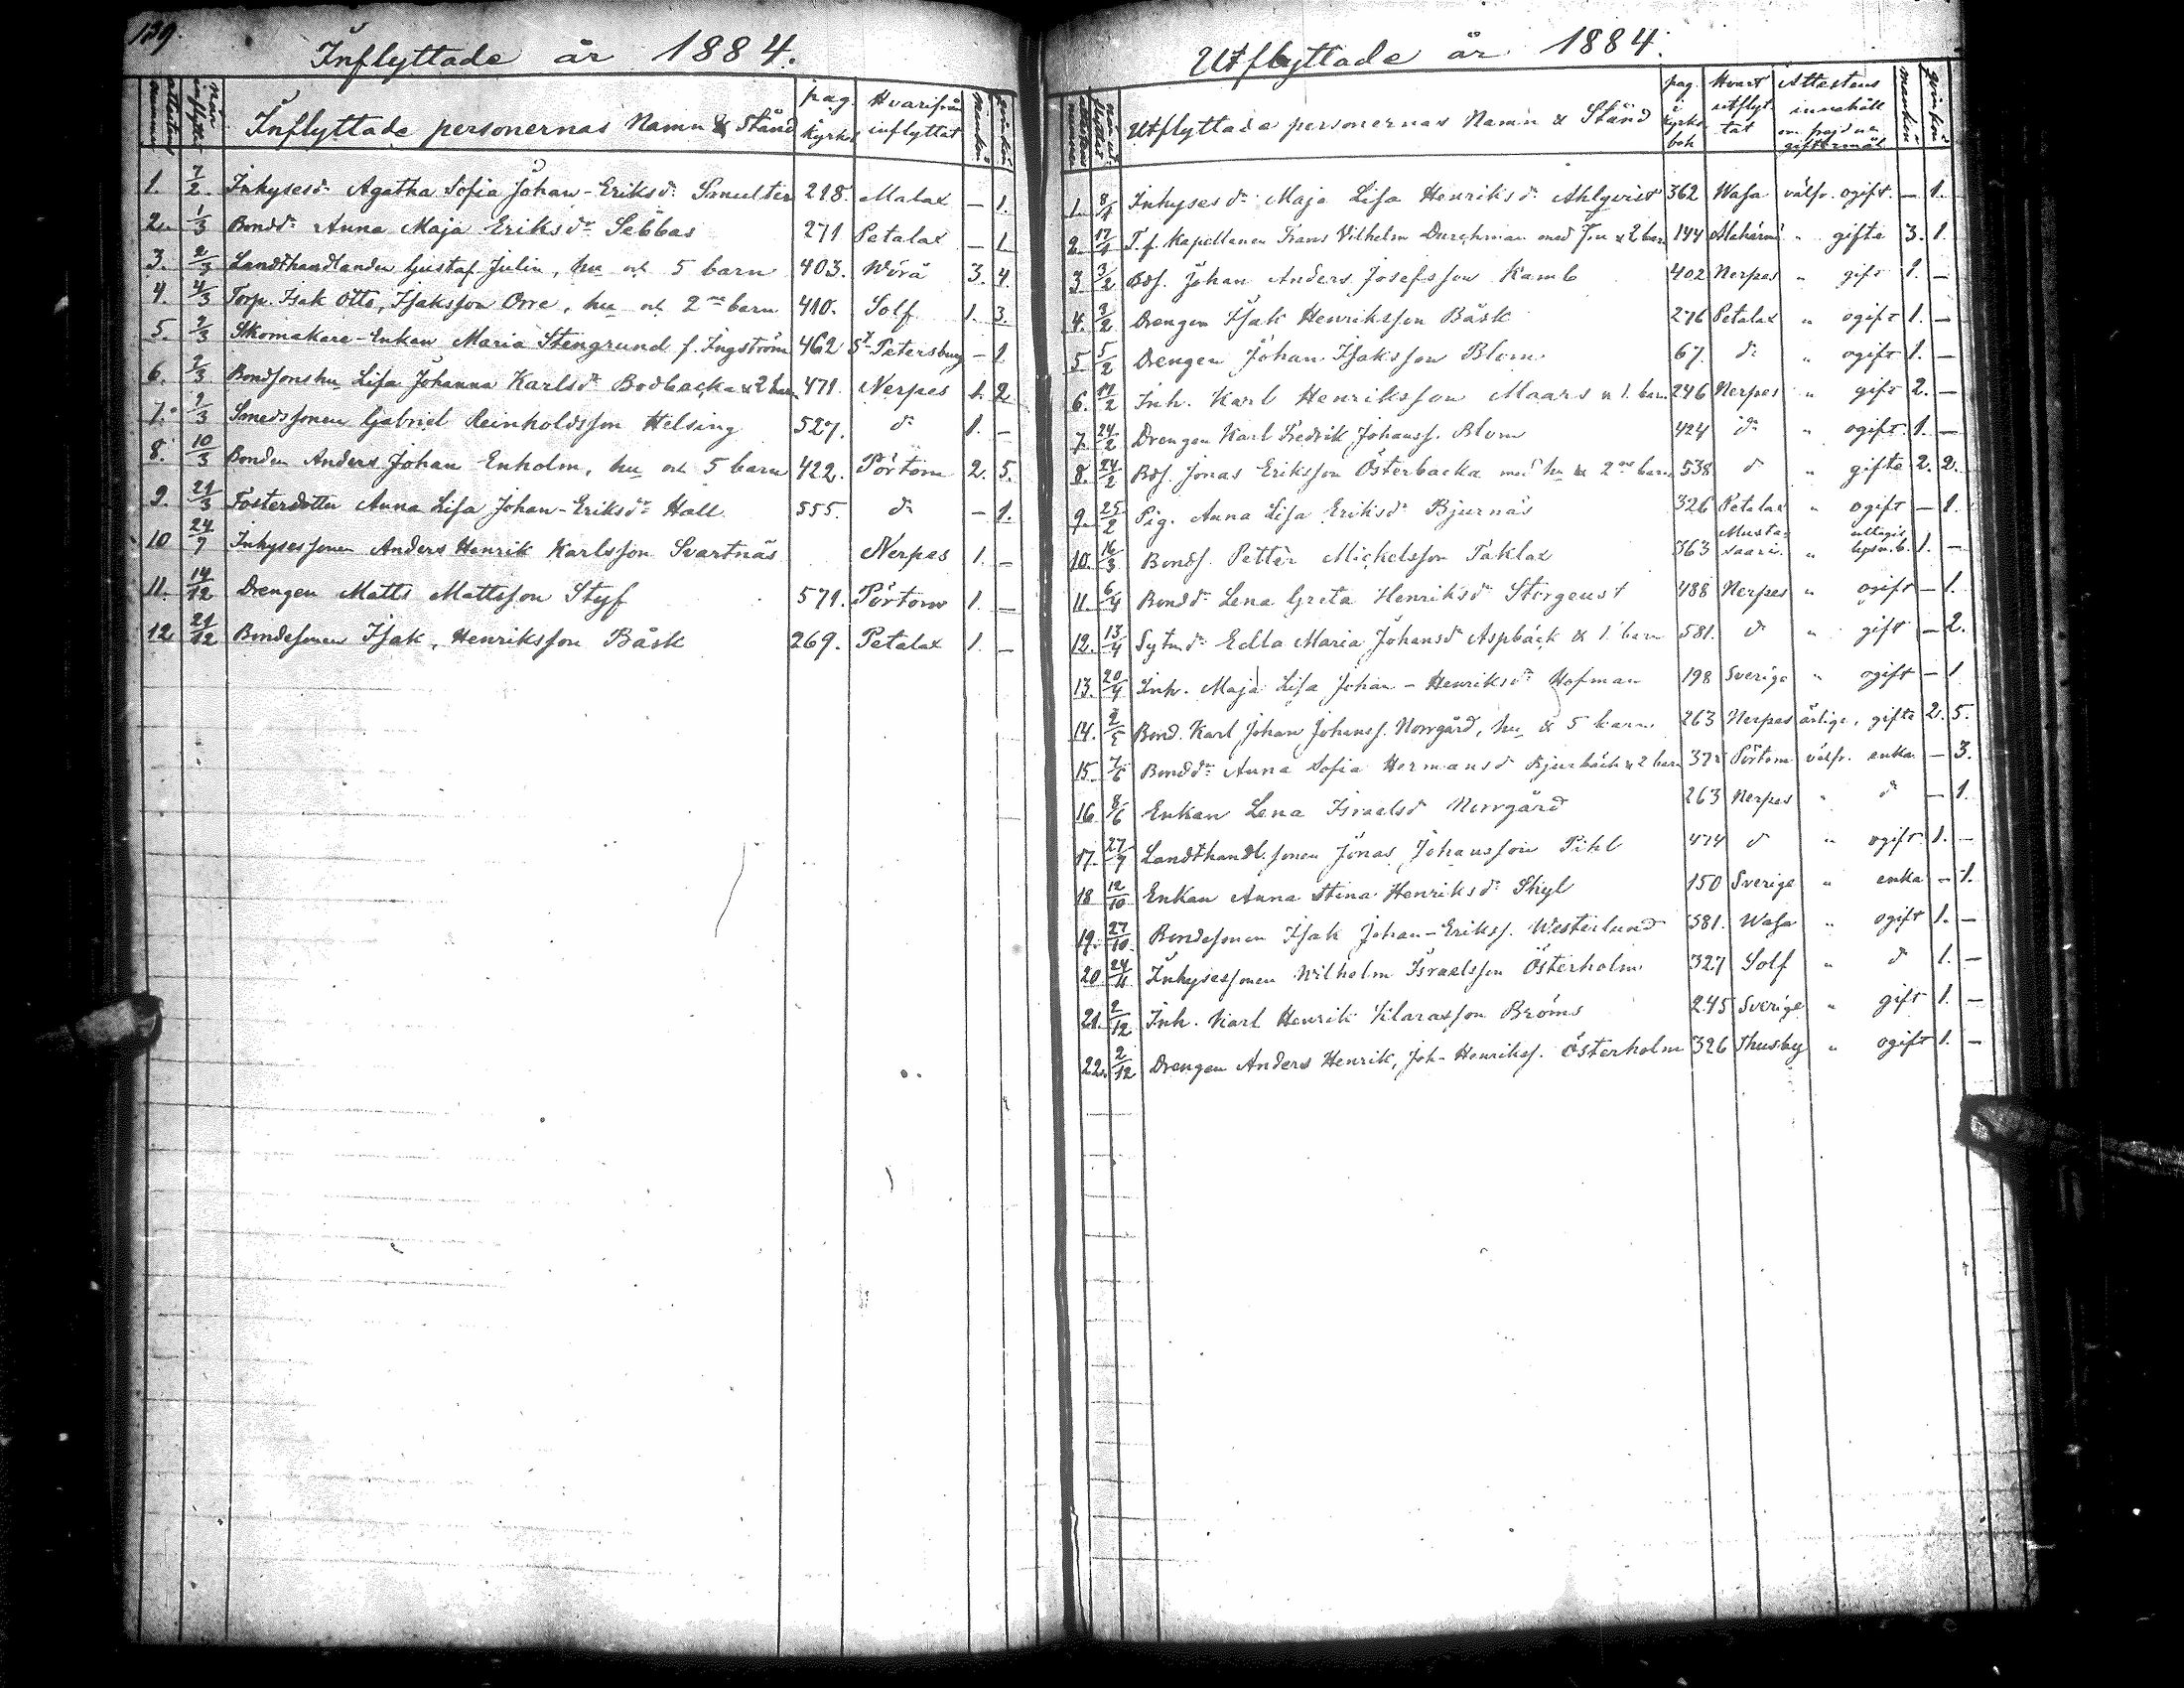 129.
Inflyttade år 1884.
Inflyttade personernas Namn & Stånd pag. Kyrkob Hvarifrån inflyttat
1. 7/2 Inhysesdr Agatha Sofia Johan-Eriksdr Smulter 218. Malax — 1.
2. 1/3 Bonddr Anna Maja Eriksdr Sebbas 271 Petalax — 1.
3. 2/3 Landthandlanden Gustaf Julin, hu och 5 barn 403. Wörå 3. 4.
4. 4/3 Torp. Isak Otto, Isaksson Orre, hu och 2ne barn 410. Solf 1. 3.
5. 2/3 Skomakare-Enkan Maria Stengrund f. Ingström 462 St Petersburg — 1.
6. 2/3 Bondsonshu Lisa Johanna Karlsdr Bodbacka & 2 barn 471. Nerpes 1. 2.
7. 2/3 Smedssonen Gabriel Reinholdsson Helsing 527. do 1. —
8. 10/3 Bonden Anders Johan Enholm, hu och 5 barn 422. Pörtom 2. 5.
9. 21/3 Fosterdotter Anna Lisa Johan-Eriksdr Hall 555. do — 1.
10 24/7 Inhysessonen Anders Henrik Karlsson Svartnäs Nerpes 1. —
11. 14/12 Drengen Matts Mattsson Styf 571. Pörtom 1. —
12 21/12 Bondesonen Isak, Henriksson Båsk 269. Petalax 1. —
Utflyttade år 1884.
Utflyttade personernas Namn & Stånd pag. i kyrko bok Hvart utflyt tat Attestens innehåll om frejd na giftermål mankön qvinkön
1. 8/1 Inhysesdr Maja Lisa Henriksdr Ahlqvist 362 Wasa välfr. ogift. — 1.
2. 17/1 T. f. Kapellanen Frans Vilhelm Durchman med Fru & 2 barn 144 Alahärmä " gifta 3. 1.
3 3/2 Bds. Johan Anders Josefsson Kamb 402 Nerpes " gift 1. —
4. 3/2 Drengen Isak Henriksson Båsk 276 Petalax " ogift 1. —
5 5/2 Drengen Johan Isaksson Blom 67. do " ogift 1. —
6. 17/2 Inh. Karl Henriksson Maars & 1. barn 246 Nerpes " gift 2. —
7. 24/2 Drengen Karl Fredrik Johanss. Blom 424 do " ogift. 1. —
8. 24/2 Bds. Jonas Eriksson Österbacka med hu & 2ne barn 538 do " gifta 2. 2.
9. 25/2 Pig. Anna Lisa Eriksdr Bjurnäs 326 Petalax " ogift — 1.
10. 16/3 Bonds. Petter Mickelsson Taklax 363 Mustasaari " uttagit 1. —
11. 6/4 Bonddr Lena Greta Henriksdr Storgeust 488 Nerpes " ogift — 1.
12. 13/4 Sytndr Edla Maria Johansdr Aspbäck & 1. barn 581. do " gift — 2.
13. 20/4 Inh. Maja Lisa Johan-Henriksdr Hofman 198 Sverige " ogift — 1
14. 2/5 Bond. Karl Johan Johanss. Norrgård, hu & 5 barn 263 Nerpes ärlige, gifta 2. 5.
15. 7/6 Bonddr Anna Sofia Hermansdr Bjurbäck & 2 barn Pörtom välfr. enka — 3.
16. 8/6 Enkan Lena Israelsdr Norrgård 263 Nerpes " do — 1.
17. 27/7 Landthandl. sonen Jonas, Johansson Pihl 474 do " ogift. 1. —
18 12/10 Enkan Anna Stina Henriksdr Skyt 150 Sverige " enka — 1.
19. 27/10. Bondesonen Isak Johan-Erikss. Westerlund 381. Wasa " ogift 1. —
20. 24/11 Inhysessonen Wilhelm Israelsson Österholm 327 Solf " do 1. —
21. 2/12 Inh. Karl Henrik Klarasson Bröms 245 Sverige " gift 1. —
22. 2/12 Drengen Anders Henrik, Joh-Henrikss. Österholm 326 Thusby " ogift 1. —